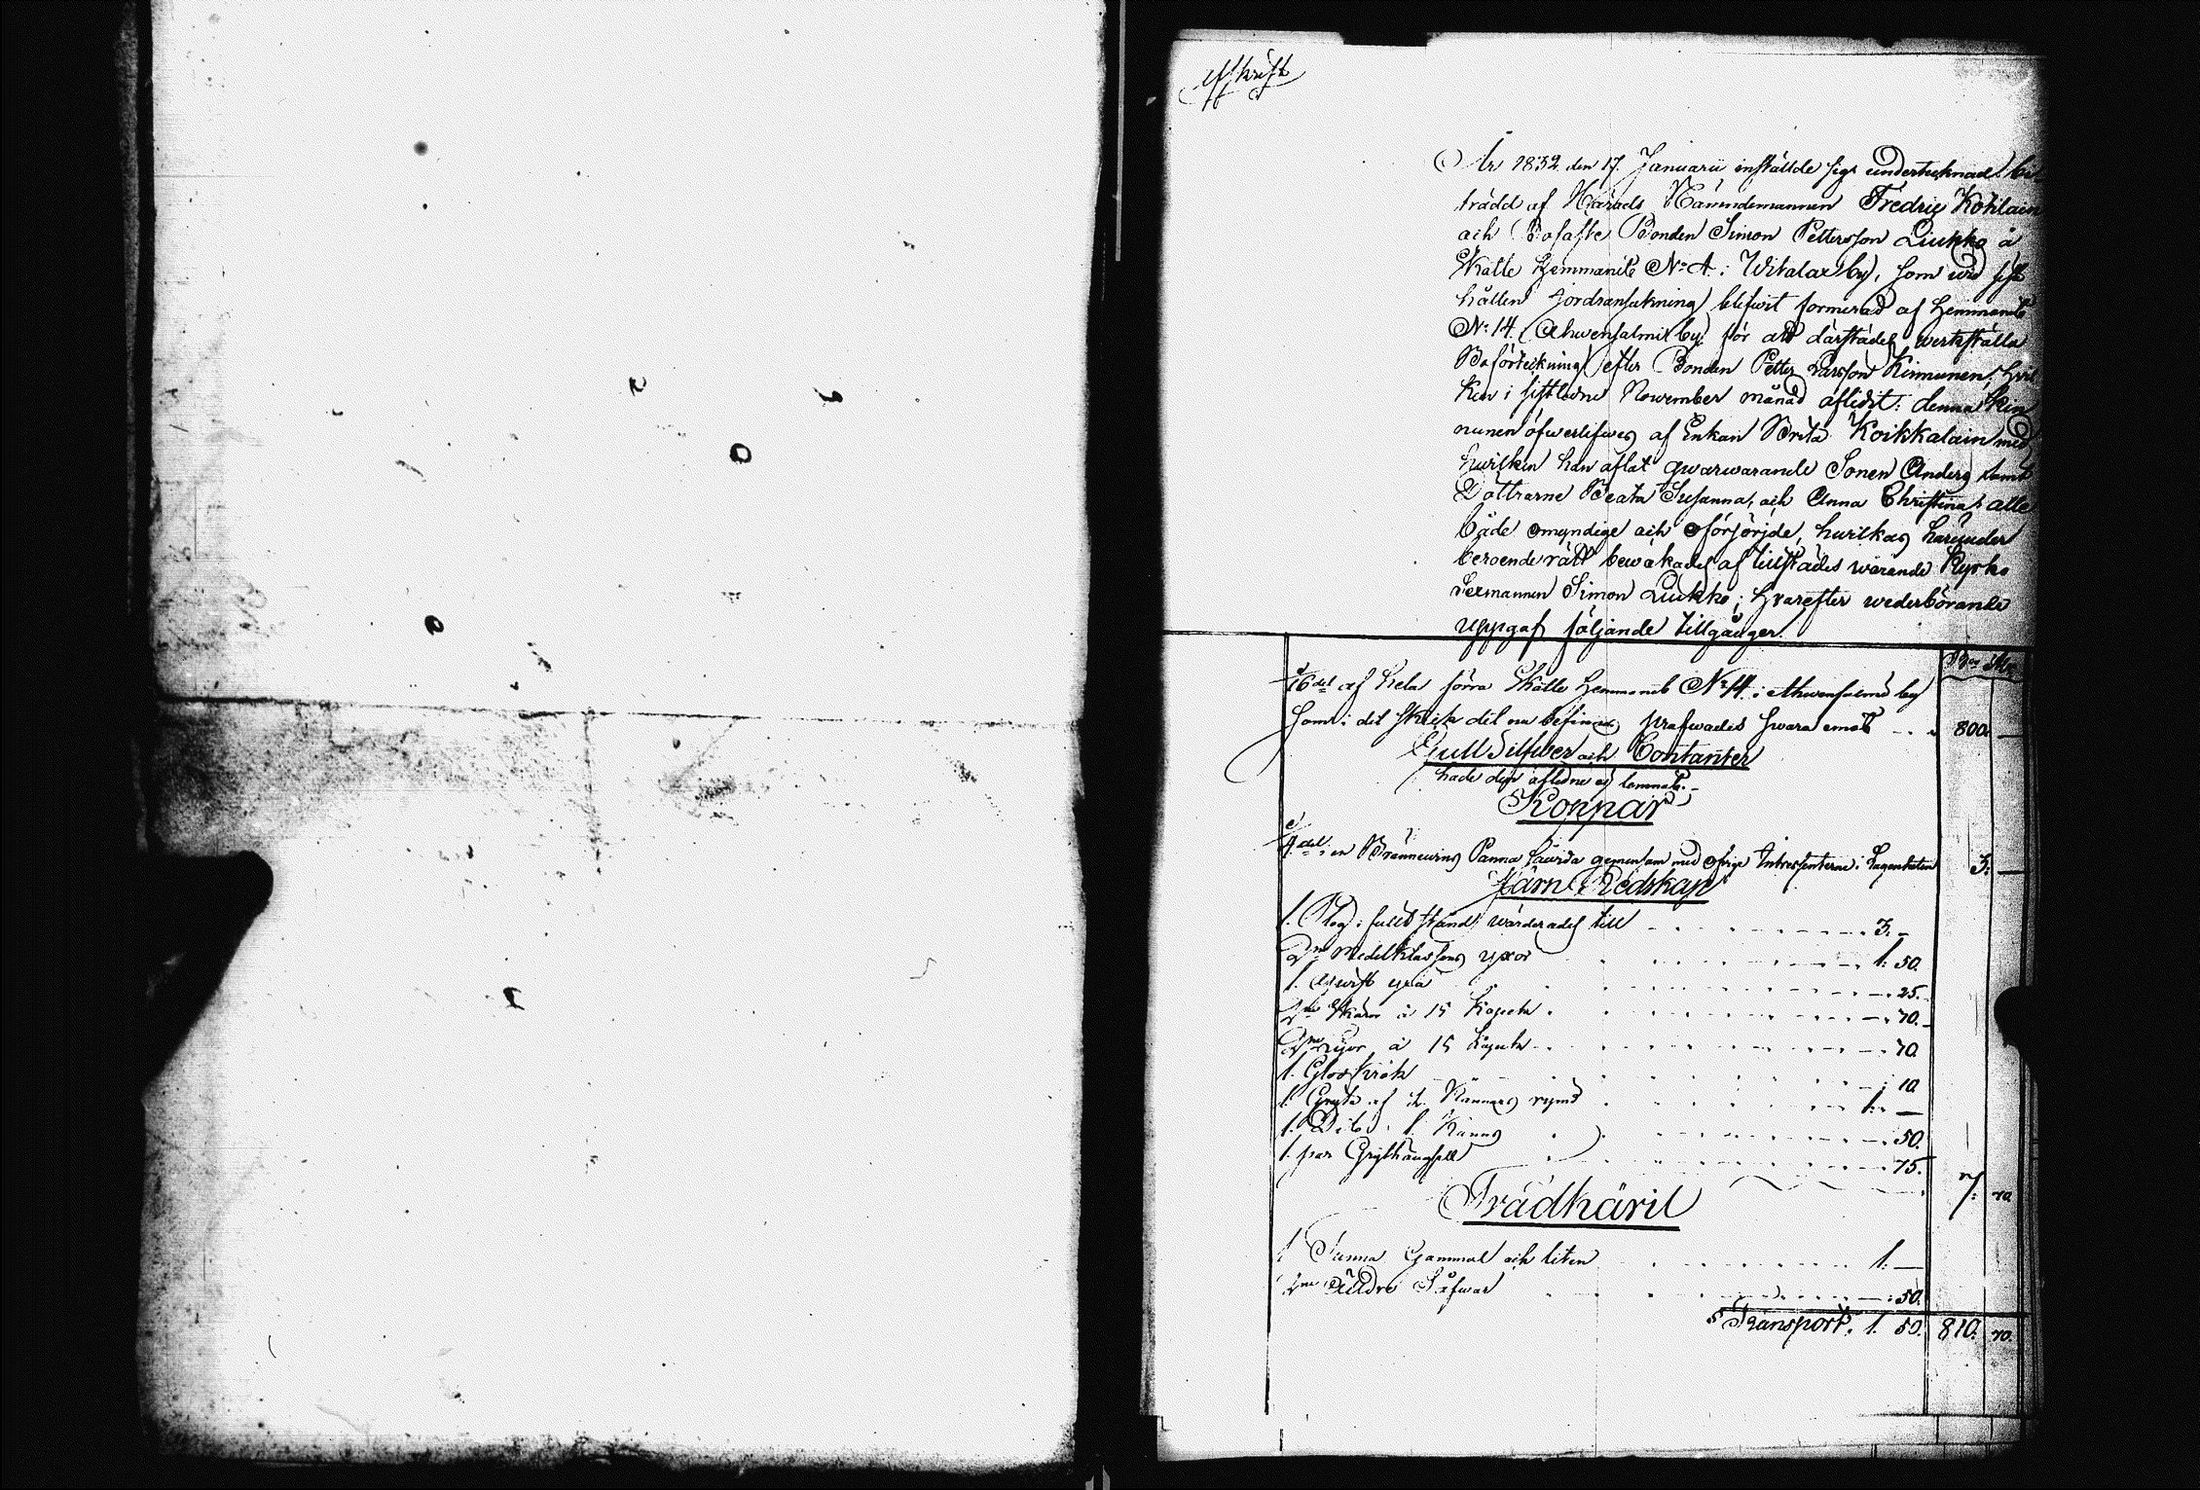 Afskrift
År 1832 den 17 Januarii instälde sig undertecknad bi-
trädd af Härads Nämndemannen Fredric Kohlain
och Bofaste Bonden Simon Pettersson Liukko å
Skatte Hemmanet No 4 i Witalax by, som vid sist
hållen Jordransakning blifwit formerad af Hemmanet
No 14 Ahwensalmis by för att därstädes werkställa
Boförteckning efter Bonden Petter Larsson Kinnunen, hvil
ken i sistledne November månad aflidit: denna Kin
nunen öfwerlefwes af Enkan Brita Koikkalain med
hwilken han aflat qwarwarande Sonen Anders samt
Döttrarne Beata Susanna, och Anna Christina, alle
både omyndige och oförsörjde, hwilkas härunder
beroende rätt bewakades af tillstädes warande Kyrko
Sexmannen Simon Liukko; hvarefter wederbörande
uppgaf följande tillgångar.
af hela förra Skatte Hemmanet No 14 i Ahwensalmis by
som i det skick det nu befinnes swara emot 800 —
Gull Silfwer och Contanter
hade den aflidne ej lemnat.
Koppar
1/4 del i en Bränwins Panna gemensam med öfrige Intressenterne i Lägenheten 3. —
Järn Redskap
1. Plog i fullt stånd värderades till 3. —
2ne medelklassens yxor 1. 50.
1. yxa 25.
Skäror à 15 Kopek 70.
à 15 Kopek 70.
1. Glodkrok 10
1. Gryta af 2 Kannors rymd 1. —
1. Dito 1. Kanns 50.
1. par Grythängsle 75.
7. 70.
Trädkäril
1 Tunna Gammal och liten 1. —
2ne äldre Såfwar 50.
Transport. 1. 50. 810. 70.